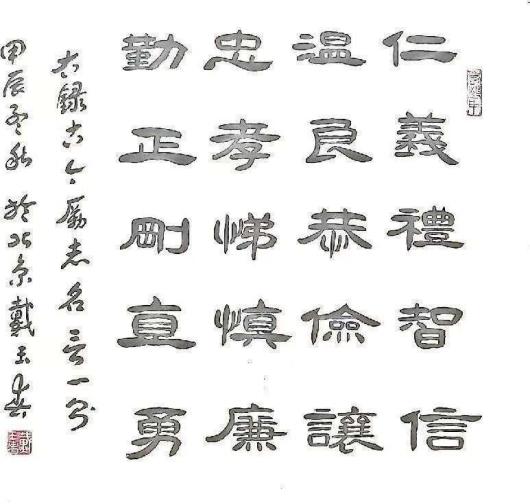 仁義禮智信
温良恭儉讓
忠孝悌慎廉
勤正剛直勇
古今勵志名言一則
甲辰孟秋於北京戴玉